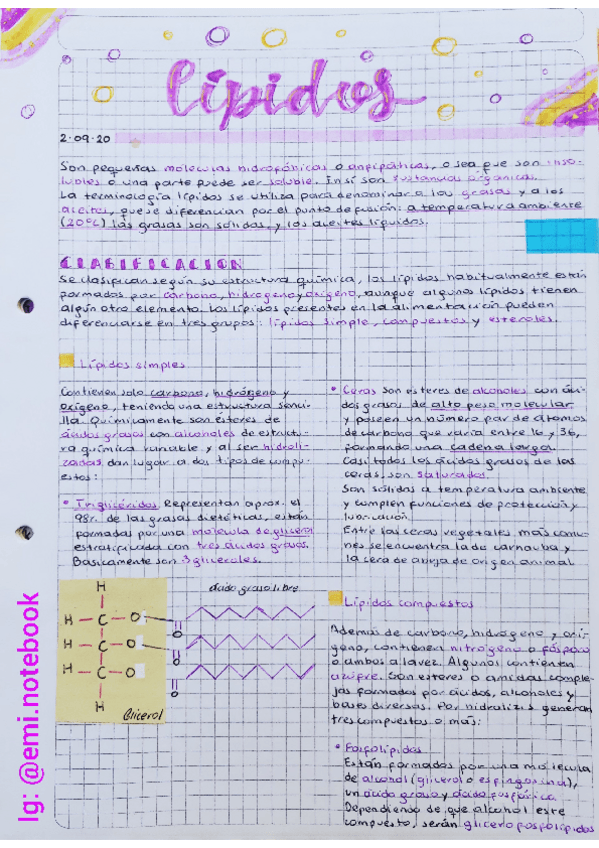 Lípidos
2·09·20
Son pequeñas moléculas hidrofóbicas o anfipáticas, o sea que son inso-
lubles o una parte puede ser soluble. En sí son sustancias orgánicas.
La terminología lípidos se utiliza para denominar a las grasas y a los
aceites, que se diferencian por el punto de fusión: a temperatura ambiente
(20°C) las grasas son sólidas, y los aceites líquidos.
CLASIFICACION
Se clasifican según su estructura química, los lípidos habitualmente están
formados por carbono, hidrógeno y oxígeno, aunque algunos lípidos tienen
algún otro elemento. Los lípidos presentes en la alimentación pueden
diferenciarse en tres grupos: lípidos simple, compuestos y esteroles.
Lípidos simples
Contienen solo carbono, hidrógeno y
oxígeno, teniendo una estructura senci-
lla. Químicamente son ésteres de
ácidos grasos con alcoholes de estructu-
ra química variable y al ser hidroli-
zadas dan lugar a dos tipos de compu-
estos:
• Triglicéridos Representan aprox. el
98%. de las grasas dietéticas, están
formadas por una molécula de glicerol
estratificada con tres ácidos grasos.
Basicamente son 3 gliceroles.
H
H – C – O
H – C – O
H – C – O
H
Glicerol
ácido graso libre
O
O
O
• Ceras son ésteres de alcoholes con áci-
dos grasos de alto peso molecular
y poseen un número par de átomos
de carbono que varía entre 16 y 36,
formando una cadena larga.
Casi todos los ácidos grasos de las
ceras, son saturados.
Son sólidas a temperatura ambiente
y cumplen funciones de protección y
lubricación.
Entre las ceras vegetales más comu-
nes se encuentra la de carnauba y
la cera de abeja de origen animal.
Lípidos compuestos
Además de carbono, hidrógeno y oxí-
geno, contienen nitrógeno o fósforo
o ambos a la vez. Algunos contienen
azufre. Son esteres o amidas comple-
jas formados por ácidos, alcoholes y
bases diversas. Por hidrólisis generan
tres compuestos o más:
• Fosfolípidos
Están formados por una molécula
de alcohol (glicerol o esfingosina),
un ácido graso y ácido fosfórico
Dependiendo de que alcohol este
compuesto, serán glicerofosfolípidos
Ig: @emi.notebook